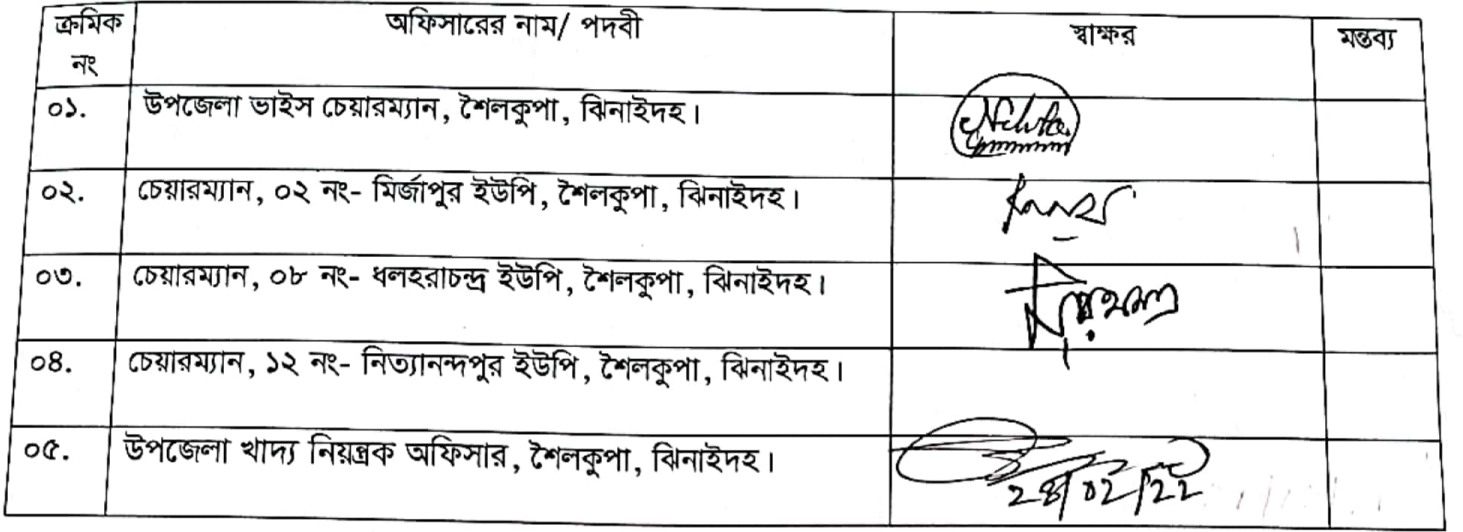 ক্রমিক নং অফিসারের নাম/ পদবী স্বাক্ষর মন্তব্য
০১. উপজেলা ভাইস চেয়ারম্যান, শৈলকুপা, ঝিনাইদহ।
০২. চেয়ারম্যান, ০২ নং- মির্জাপুর ইউপি, শৈলকুপা, ঝিনাইদহ।
০৩. চেয়ারম্যান, ০৮ নং- ধলহরাচন্দ্র ইউপি, শৈলকুপা, ঝিনাইদহ।
০৪. চেয়ারম্যান, ১২ নং- নিত্যানন্দপুর ইউপি, শৈলকুপা, ঝিনাইদহ।
০৫. উপজেলা খাদ্য নিয়ন্ত্রক অফিসার, শৈলকুপা, ঝিনাইদহ।